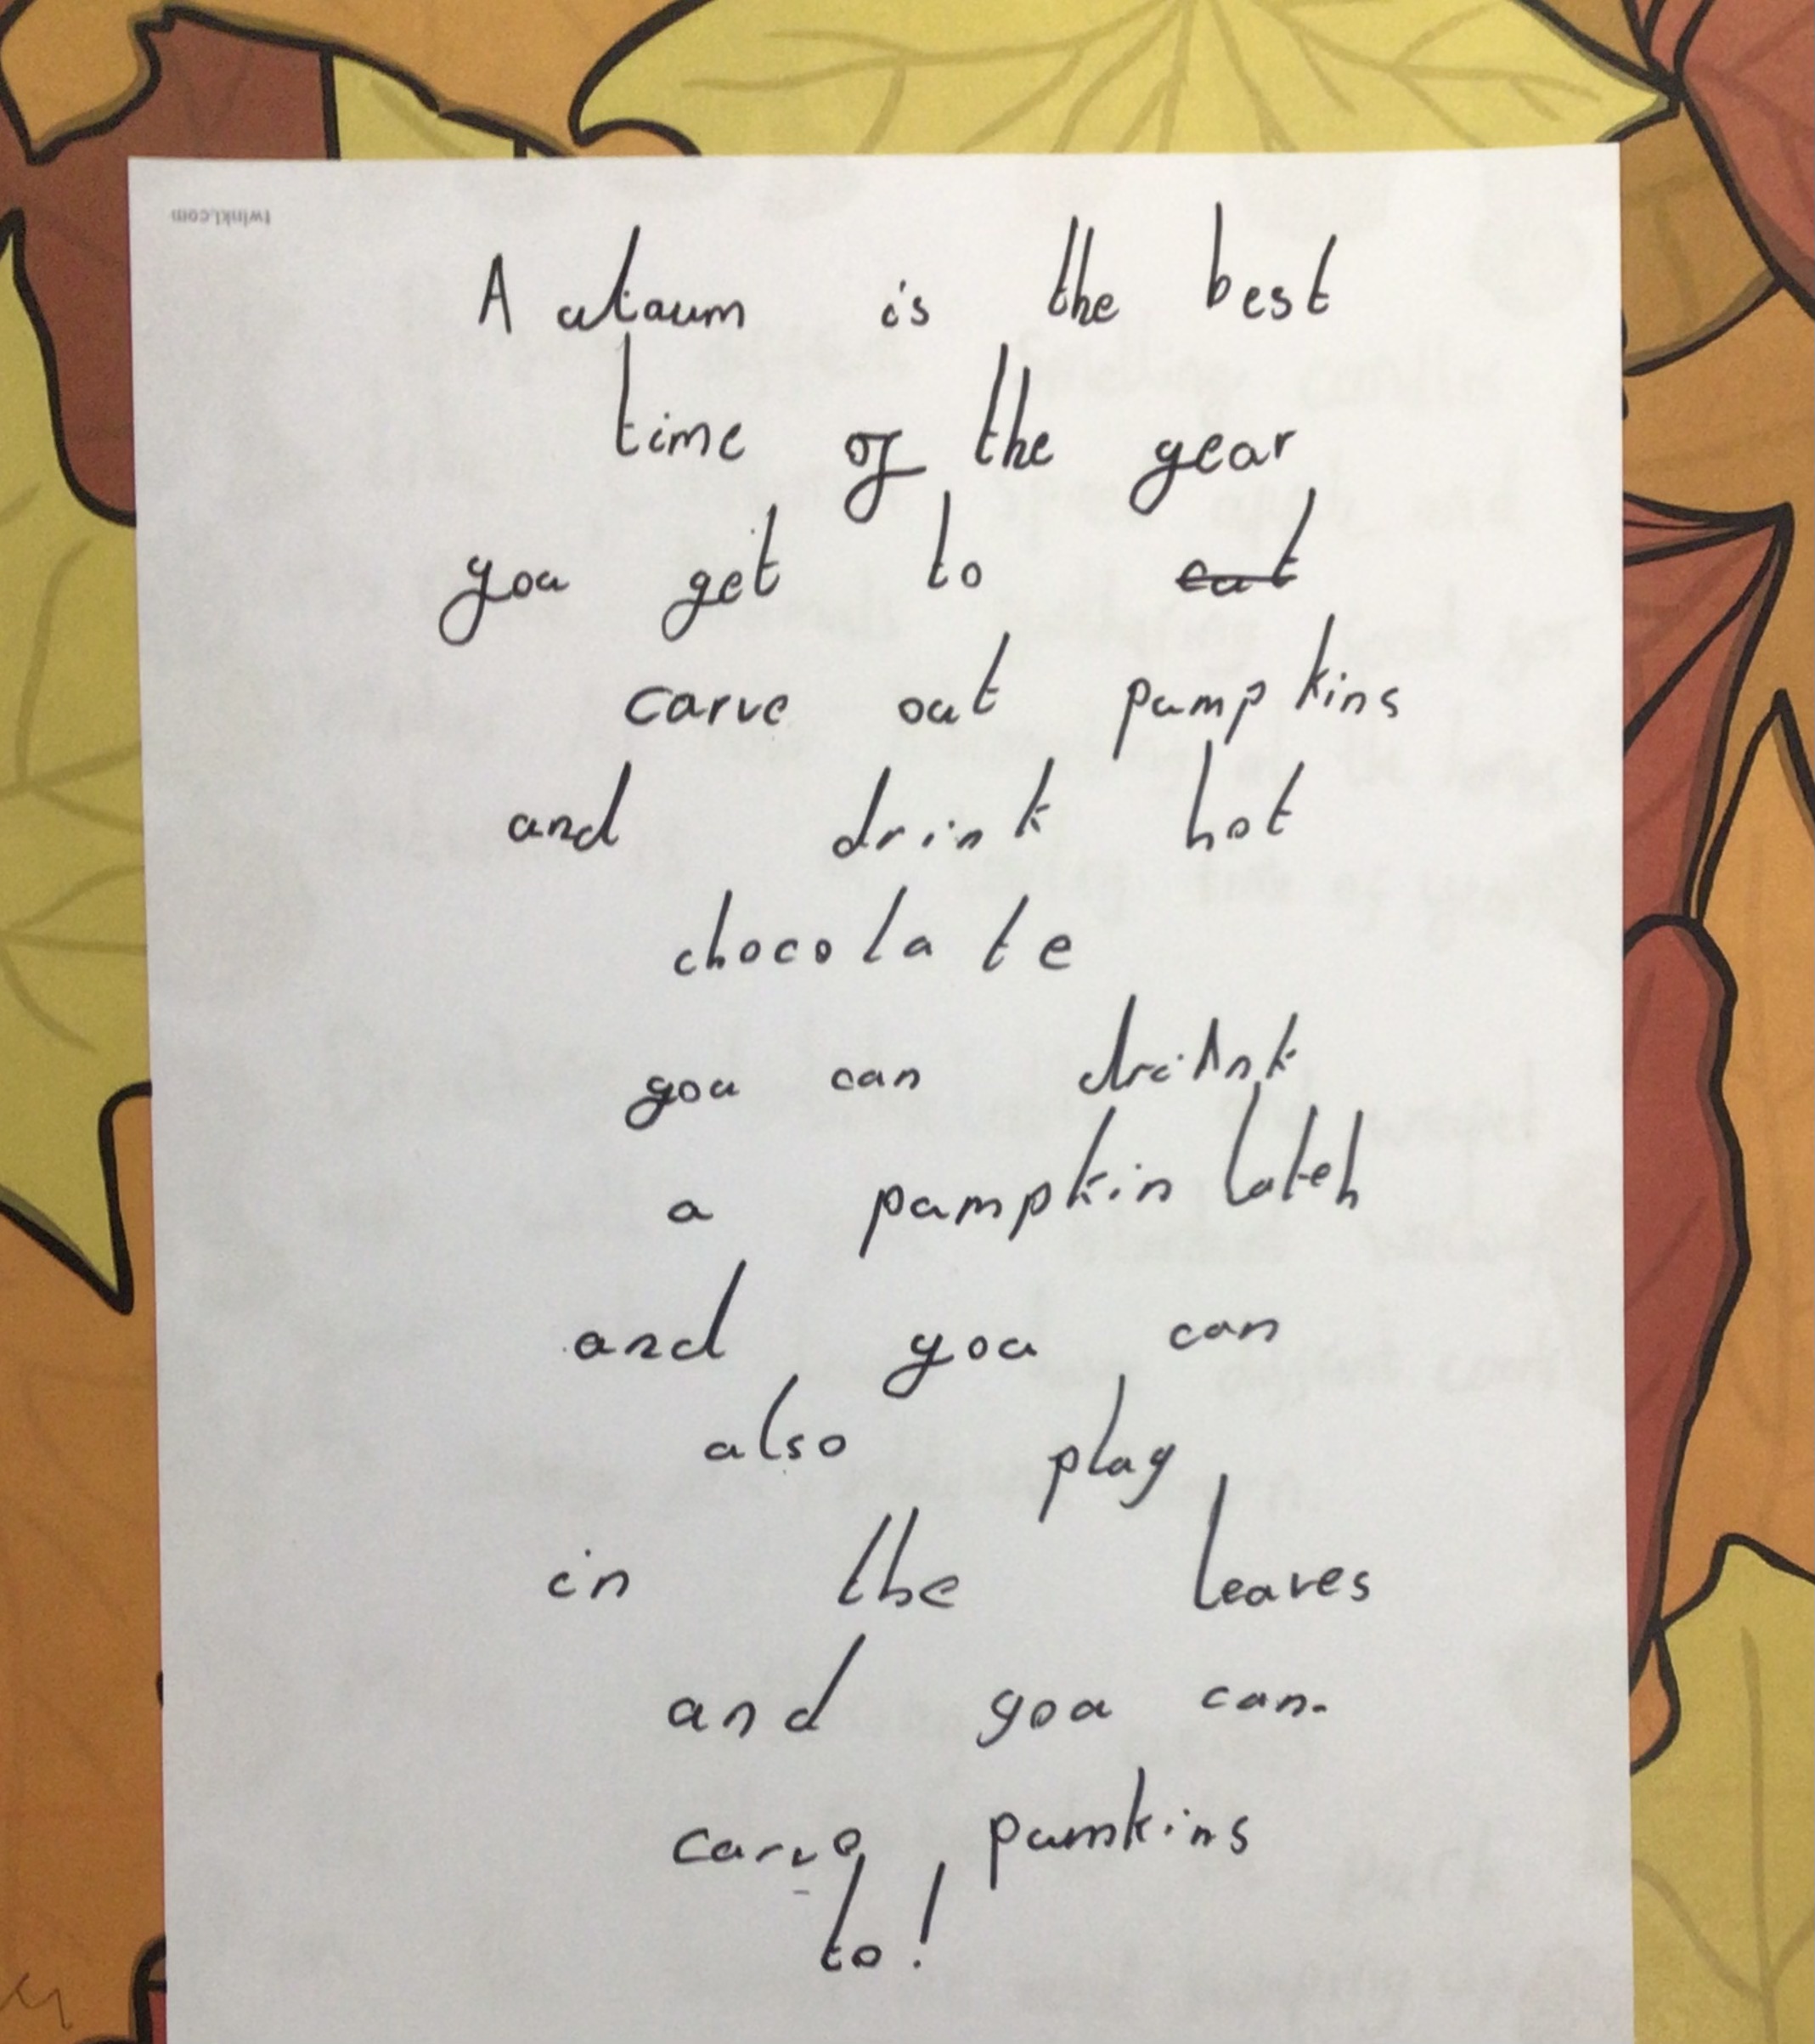 twinkl.com
Autaum is the best
time of the year
you get to cut
carve out pumpkins
and drink hot
chocolate
you can drink
a pumpkin lateh
and you can
also play
in the leaves
and you can.
carve pumkins
to!